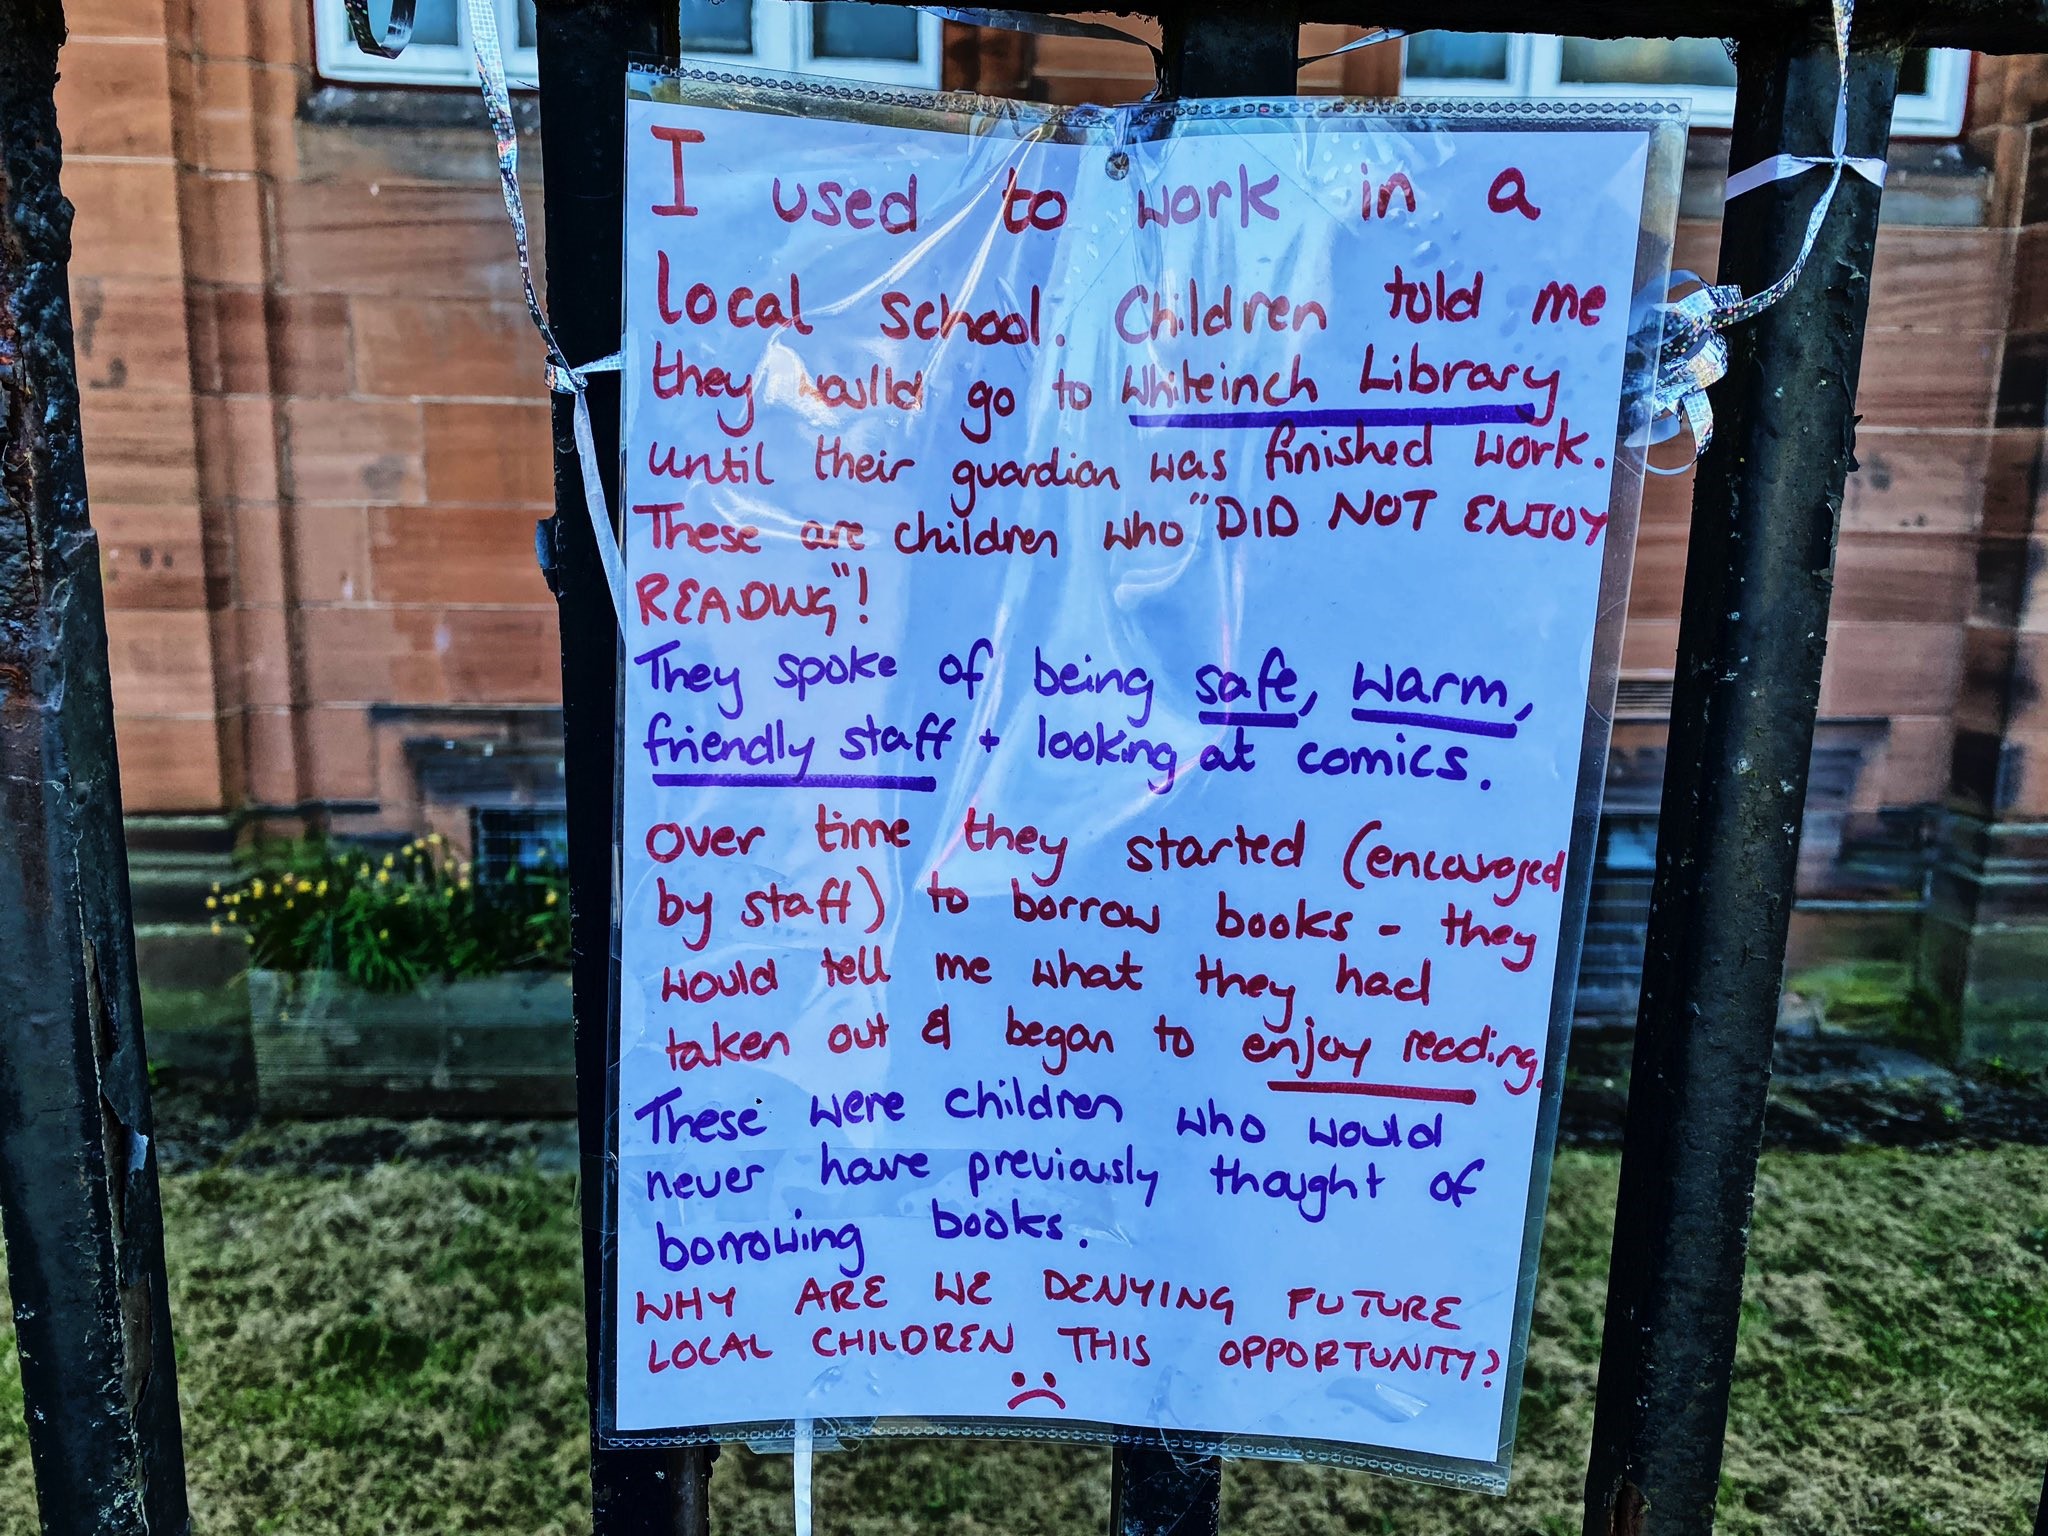 I used to work in a
local school. Children told me
they would go to Whiteinch Library
until their guardian was finished work.
These are children who "DID NOT ENJOY
READING"!
They spoke of being safe, warm,
friendly staff + looking at comics.
Over time they started (encouraged
by staff) to borrow books - they
would tell me what they had
taken out & began to enjoy reading.
These were children who would
never have previously thought of
borrowing books.
WHY ARE WE DENYING FUTURE
LOCAL CHILDREN THIS OPPORTUNITY?